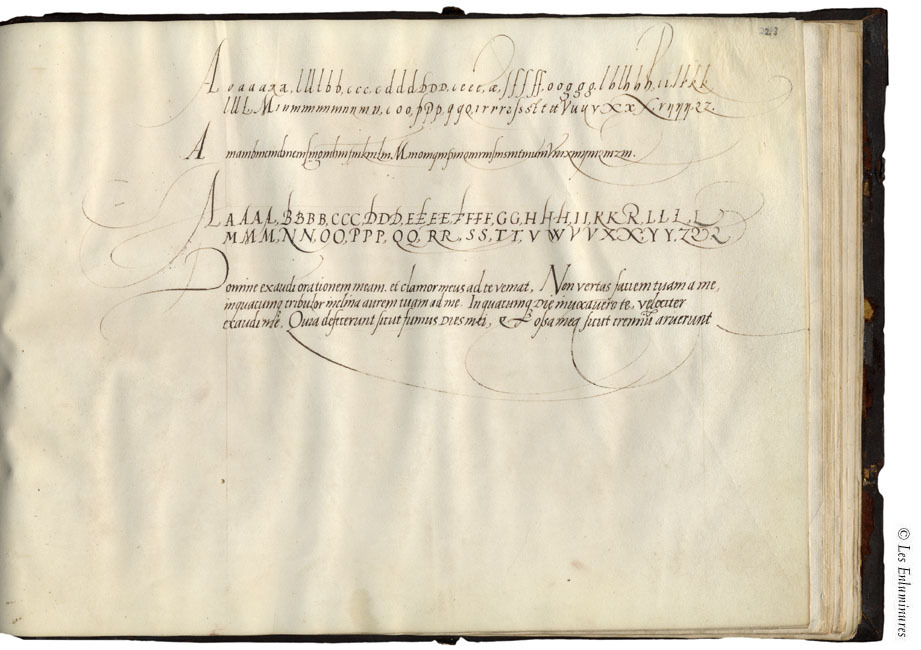 A a a a a a a, l ll l b b, c c c, c d d d d D D D, e e e e, æ, ſ f ſ ſ ff, o o g g g, l b l h h h, i i l k k k
l ll L, M i n m m m m n m n, c o o, p p p, q q Q, i r r r o ſ s s t t t t v u y v X x X, r y y y q z z.
A mambmcmdmemfmgmhmimkmlm. M.mnomqmſmqmrmſmsmtmum Vmxmymzmzm.
A A A A A, B B B B, C C C, D D D, E E E E E F F F F, G G, H H H H, I I, K K R, L L L, L
M M M, N N, O O, P P P, Q Q, R R, S S, T T, V W V V V X X X, Y Y, Z Z &
Domine exaudi orationem meam. et clamor meus ad te veniat, Non vertas faciem tuam a me,
inquacunq tribulor inclina aurem tuam ad me. In quacunq Die invocavero te. velociter
exaudi me. Quia defecerunt sicut fumus Dies mei, & ossa mea sicut cremiũ aruerunt
223
© Les Enluminures